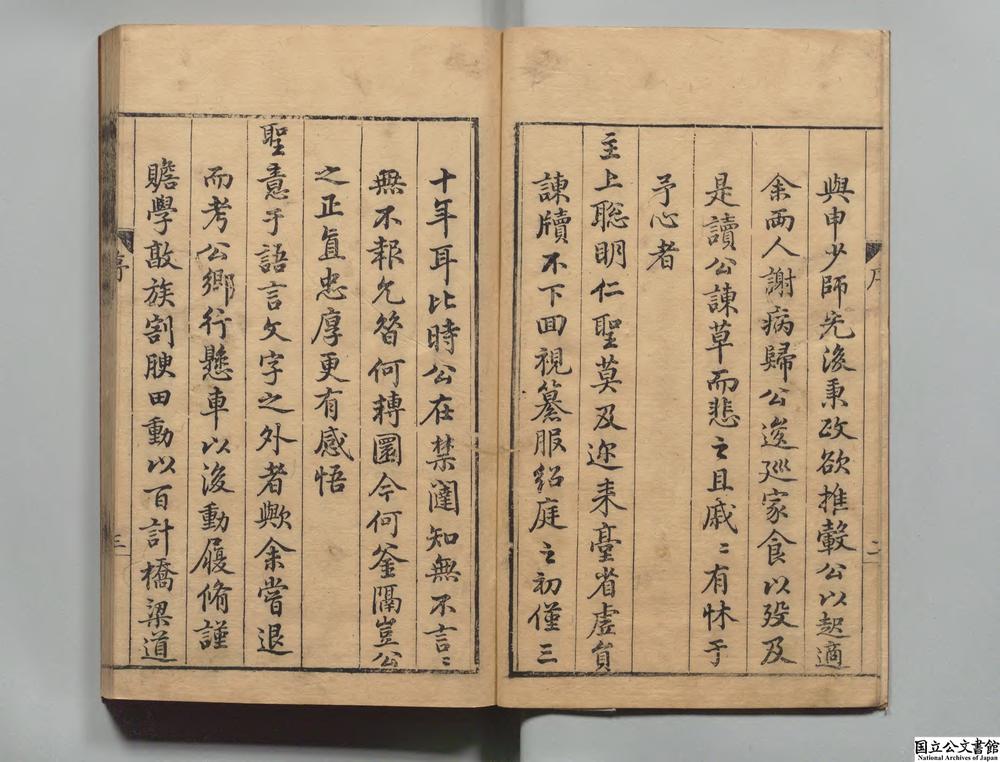 與申少師先後秉政欲推轂公以起適
余兩人謝病歸公逡巡家食以歿及
是讀公諫草而悲之且戚〻有怵于
予心者
主上聡明仁聖莫及迩来臺省虛員
諫牘不下回視纂服貂庭之初僅三
序
二
十年耳比時公在禁闥知無不言〻
無不報允昝何轉圜今何釜隔豈公
之正直忠厚更有感悟
聖意于語言文字之外者歟余嘗退
而考公鄉行懸車以後動履脩謹
贍學敦族割腴田動以百計橋梁道
序
三
国立公文書館
National Archives of Japan